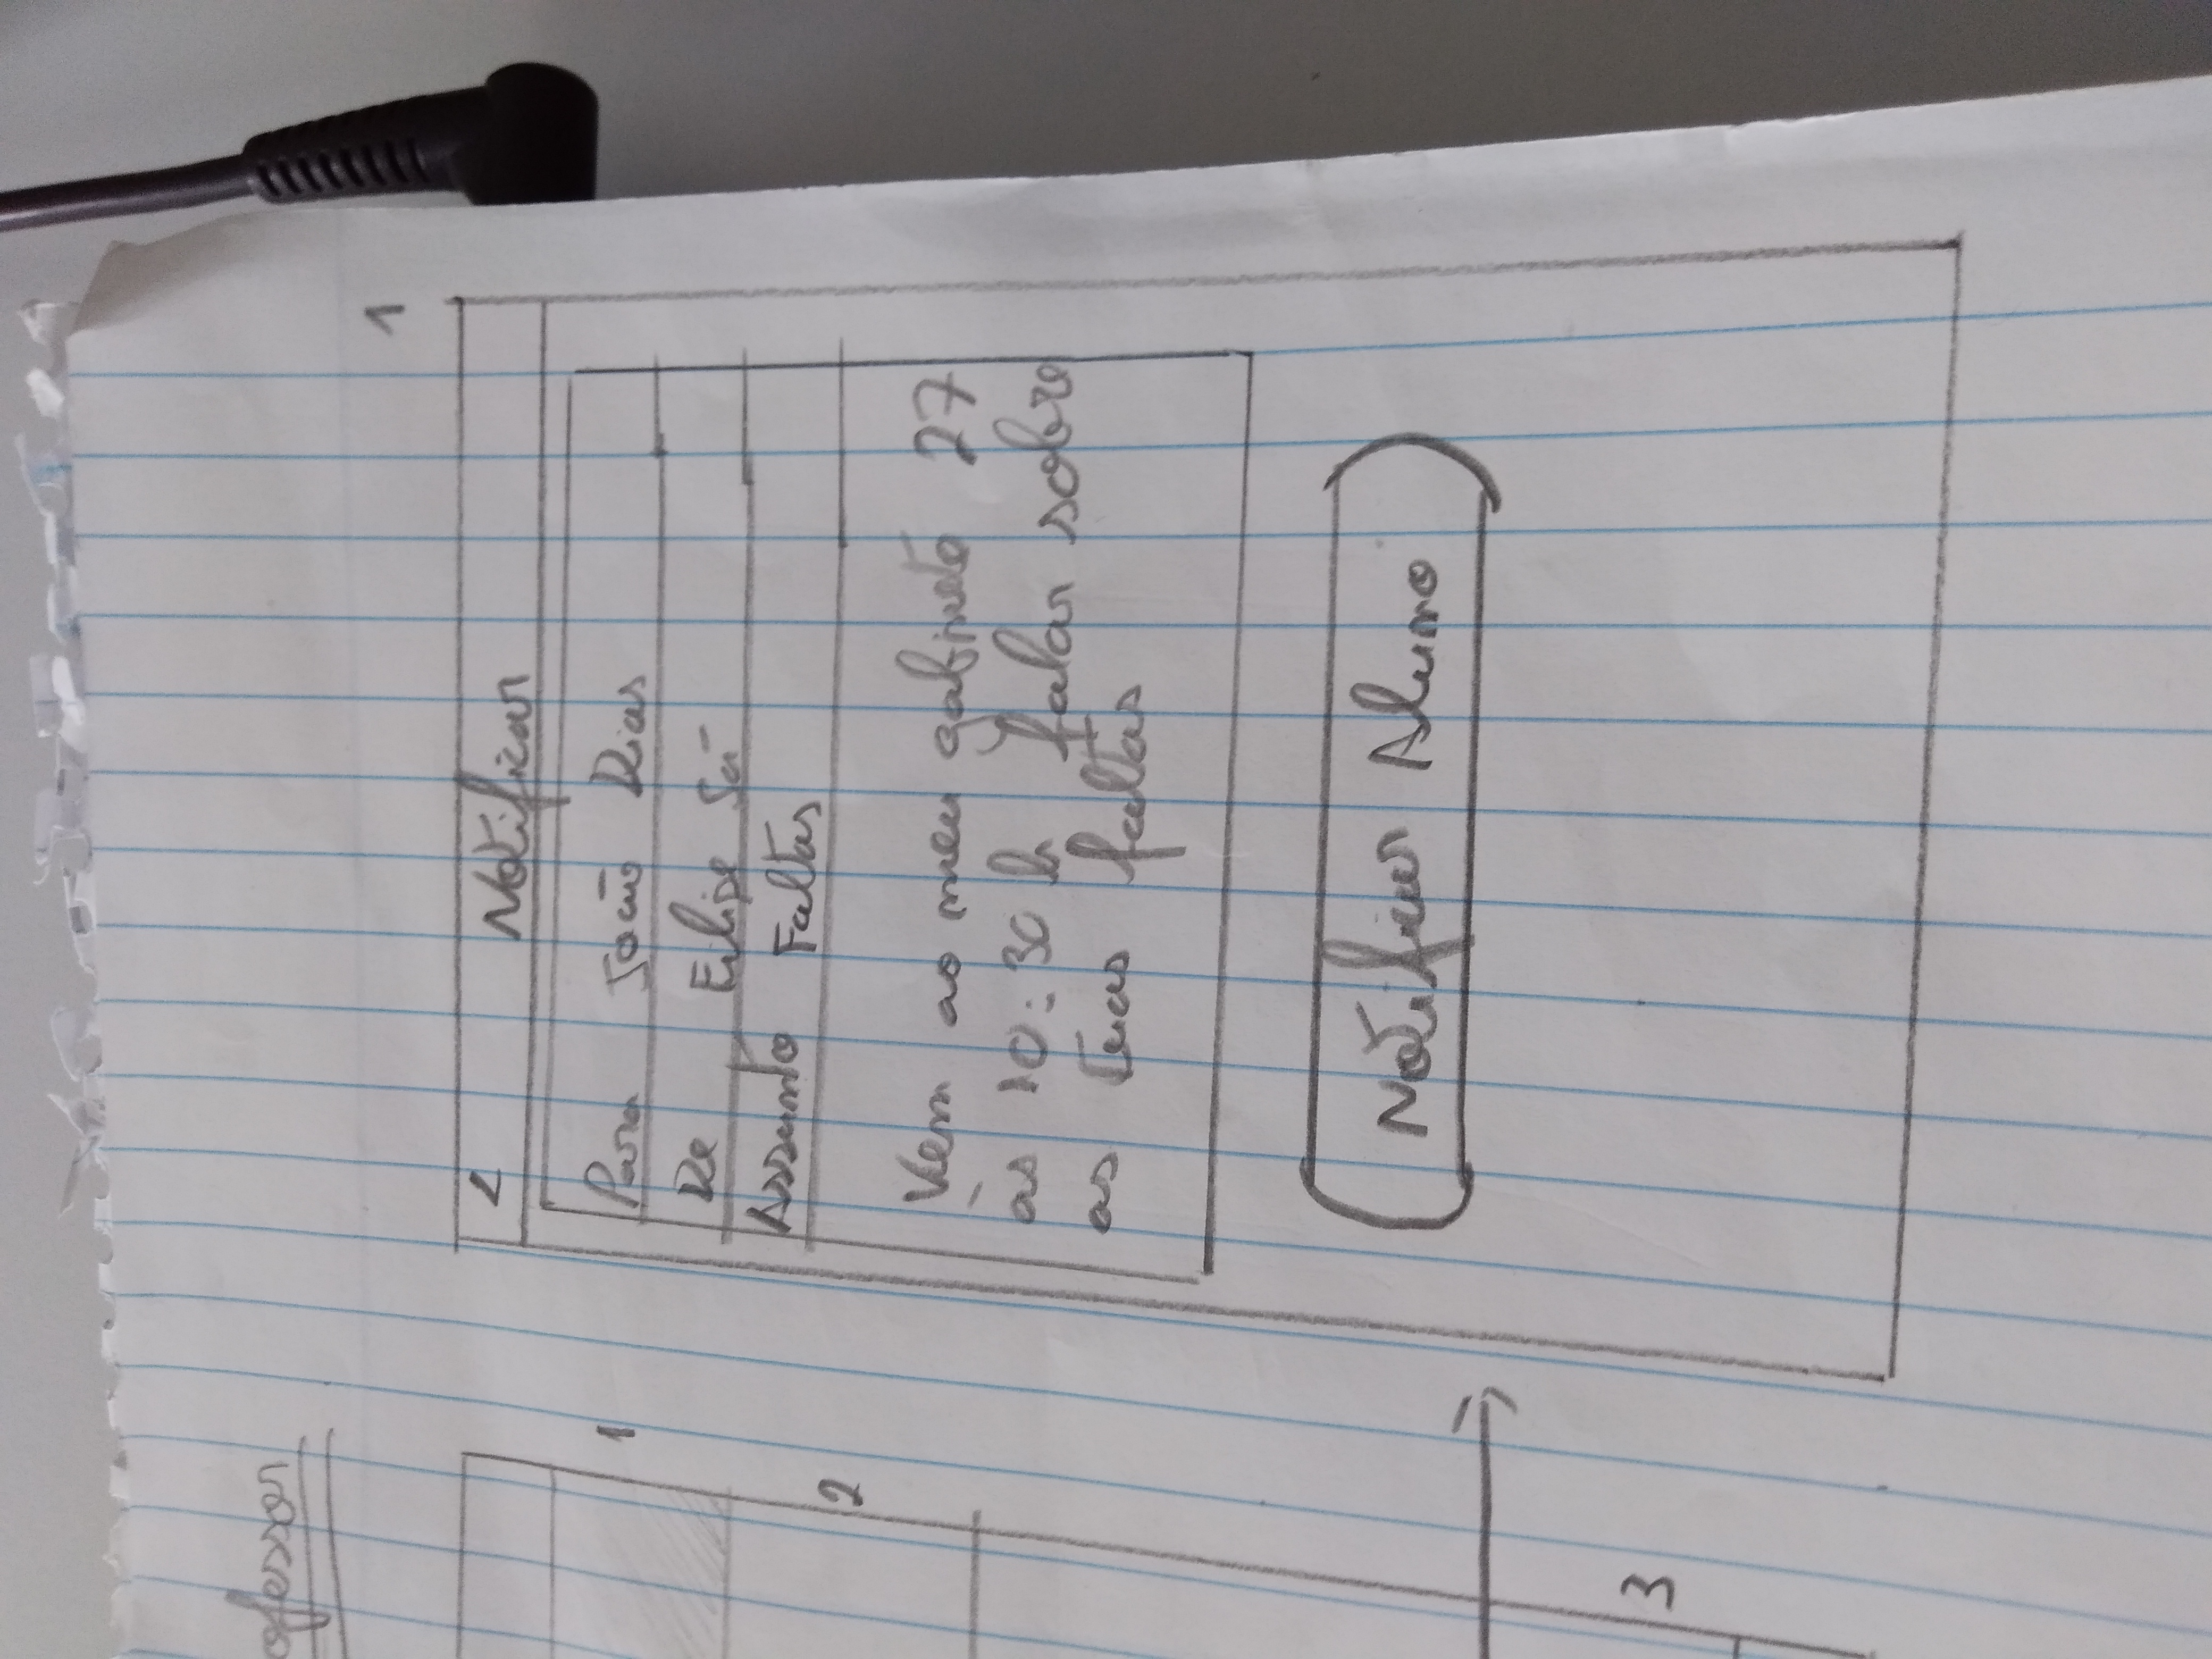 1
< Notificar
Para João Dias
De Filipe Sá
Assunto Faltas
Vem ao meu gabinete 27
às 10:30 h falar sobre
as tuas faltas
Notificar Aluno
ofessor
1
2
3